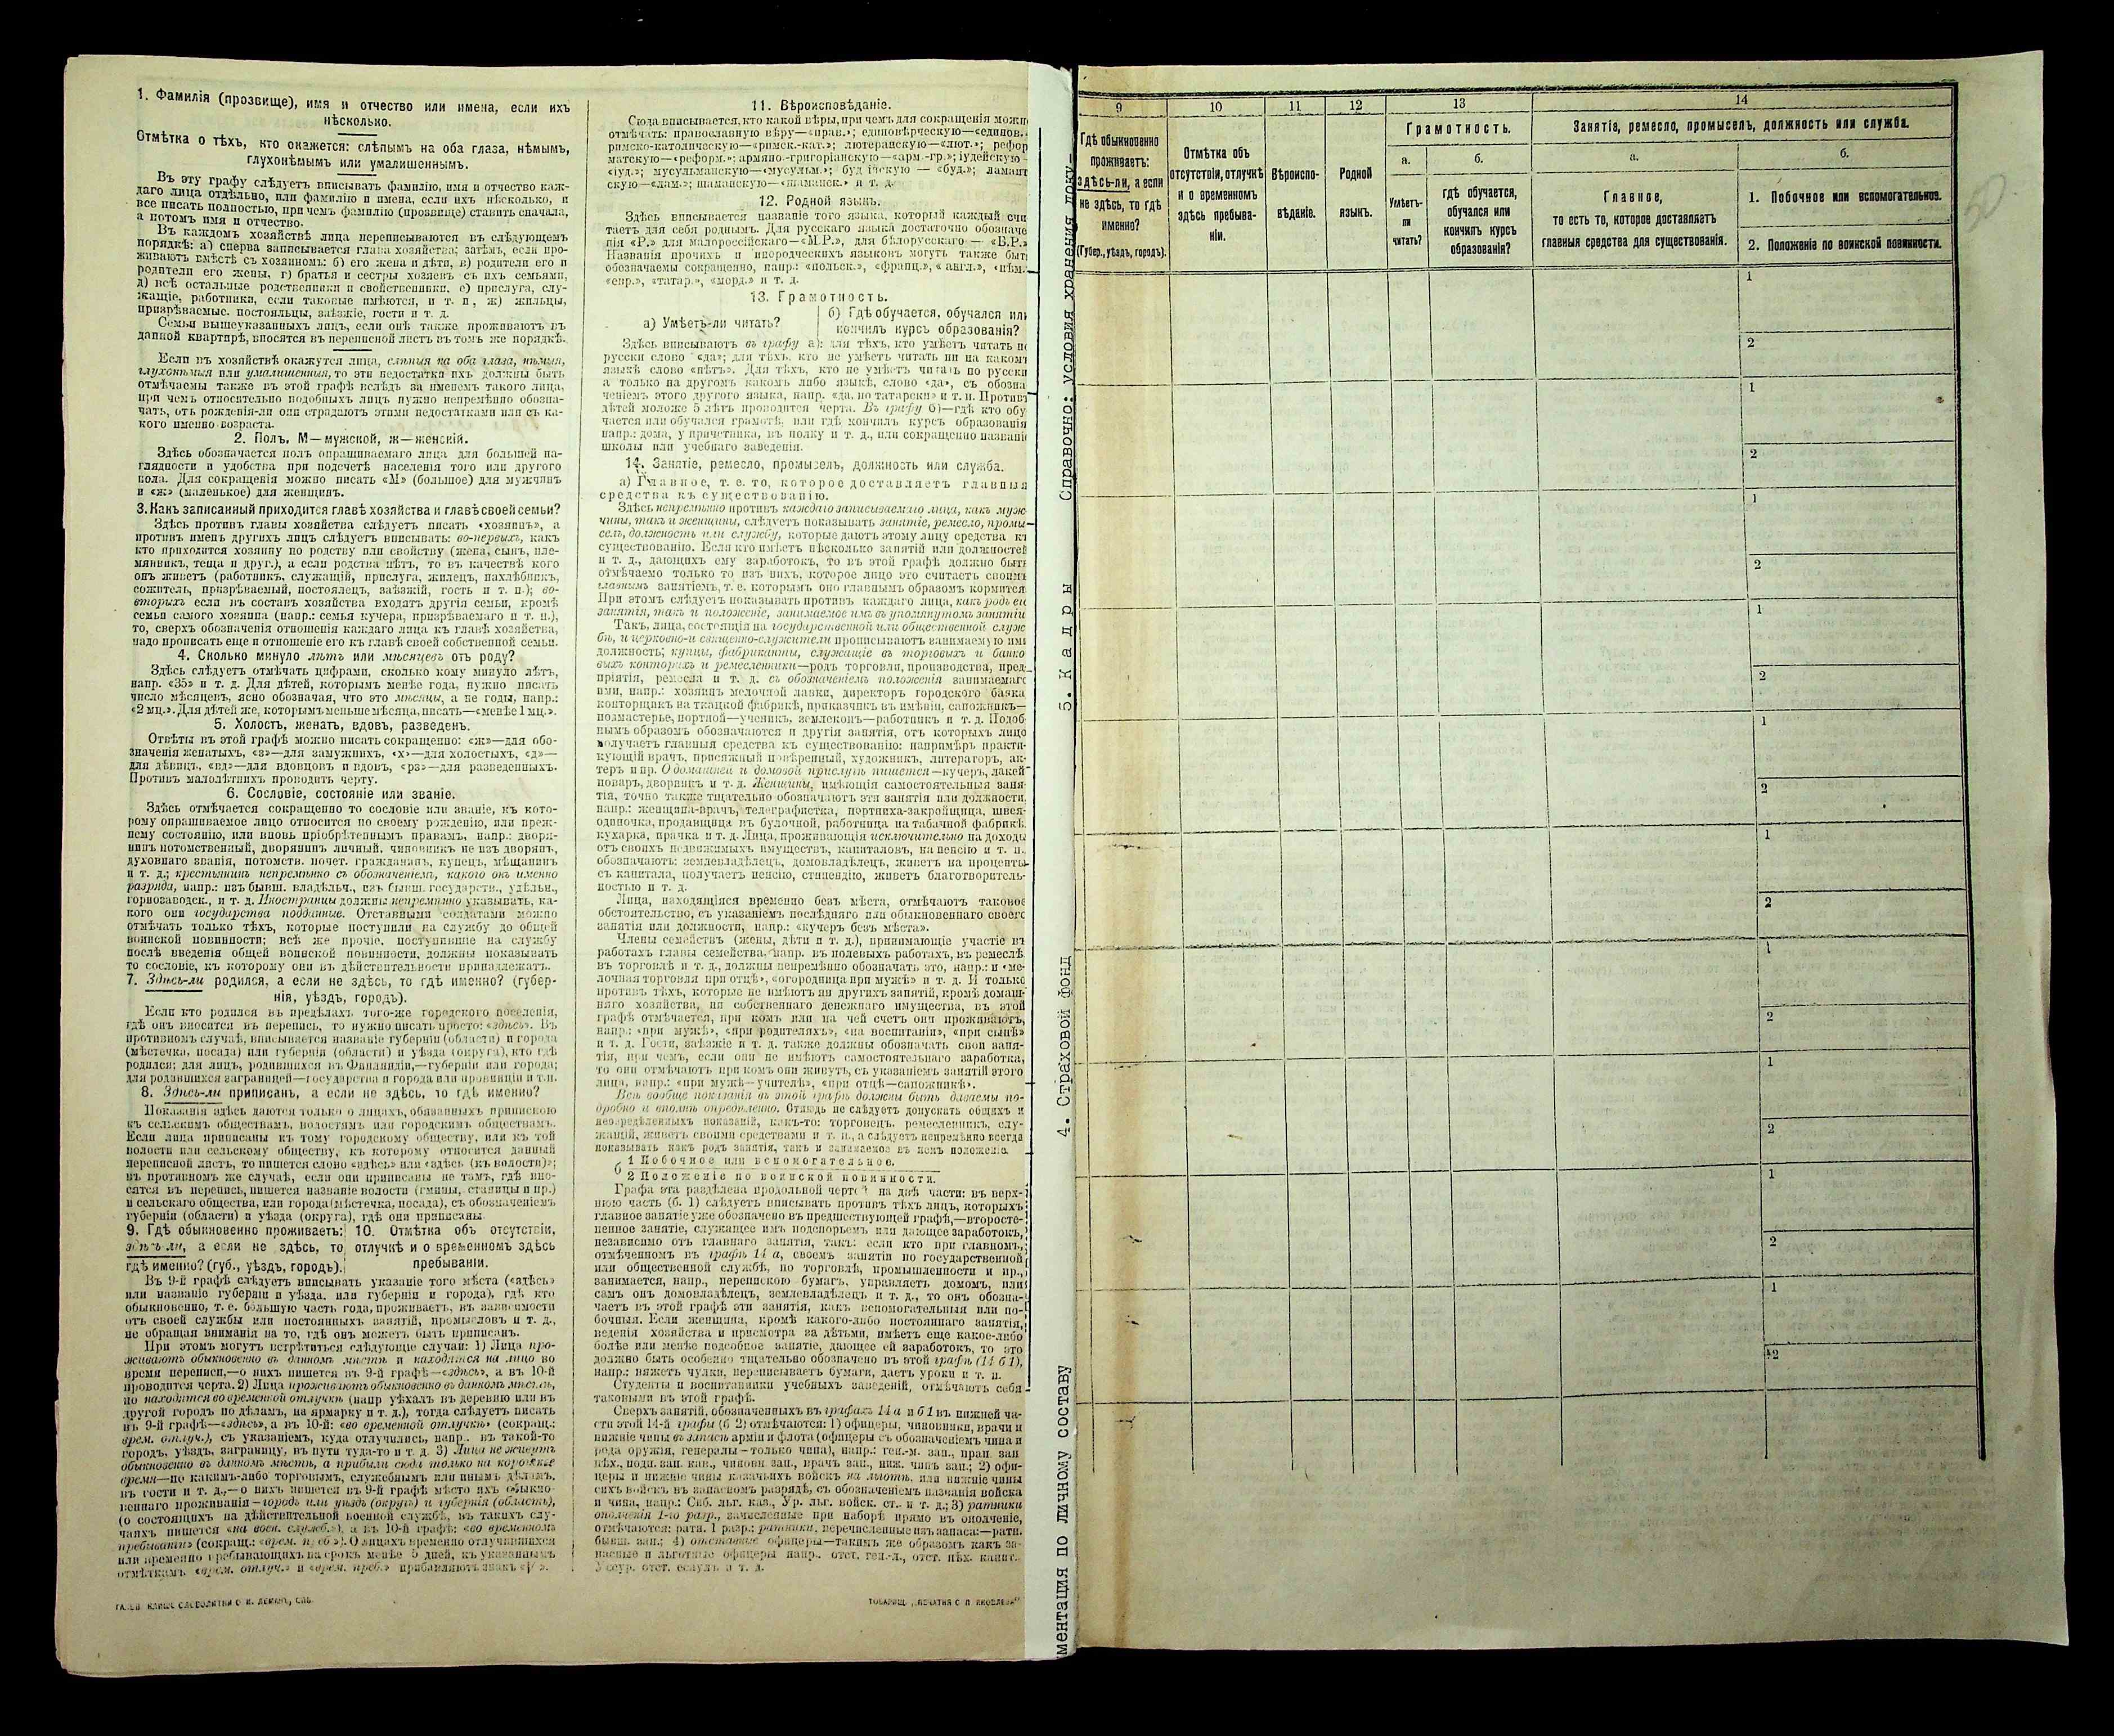 1. Фамилія (прозвище), имя и отчество или имена, если ихъ
нѣсколько.
Отмѣтка о тѣхъ, кто окажется: слѣпымъ на оба глаза, нѣмымъ,
глухонѣмымъ или умалишеннымъ.
Въ эту графу слѣдуетъ вписывать фамилію, имя и отчество каж-
даго лица отдѣльно, или фамилію и имена, если ихъ нѣсколько, и
все писать полностью, при чемъ фамилію (прозвище) ставить сначала,
а потомъ имя и отчество.
Въ каждомъ хозяйствѣ лица переписываются въ слѣдующемъ
порядкѣ: а) сперва записывается глава хозяйства; затѣмъ, если про-
живаютъ вмѣстѣ съ хозяиномъ: б) его жена и дѣти, в) родители его и
родители его жены, г) братья и сестры хозяевъ съ ихъ семьями,
д) всѣ остальные родственники и свойственники, е) прислуга, слу-
жащіе, работники, если таковые имѣются, и т. п., ж) жильцы,
призрѣваемые, постояльцы, заѣзжіе, гости и т. п.
Семьи вышеуказанныхъ лицъ, если онѣ также проживаютъ въ
данной квартирѣ, вносятся въ переписной листъ въ томъ же порядкѣ.
Если въ хозяйствѣ окажутся лица, слѣпыя на оба глаза, нѣмыя,
глухонѣмыя или умалишенныя, то эти недостатки ихъ должны быть
отмѣчаемы также въ этой графѣ вслѣдъ за именемъ такого лица,
при чемъ относительно подобныхъ лицъ нужно непремѣнно обозна-
чать, отъ рожденія-ли они страдаютъ этими недостатками или съ ка-
кого именно возраста.
2. Полъ, М—мужской, ж—женскій.
Здѣсь обозначается полъ опрашиваемаго лица для большей на-
глядности и удобства при подсчетѣ населенія того или другого
пола. Для сокращенія можно писать «М» (большое) для мужчинъ
и «ж» (маленькое) для женщинъ.
3. Какъ записанный приходится главѣ хозяйства и главѣ своей семьи?
Здѣсь противъ главы хозяйства слѣдуетъ писать «хозяинъ», а
противъ именъ другихъ лицъ слѣдуетъ вписывать: во-первыхъ, какъ
кто приходится хозяину по родству или свойству (жена, сынъ, пле-
мянникъ, теща и друг.), а если родства нѣтъ, то въ качествѣ кого
онъ живетъ (работникъ, служащій, прислуга, жилецъ, нахлѣбникъ,
сожитель, призрѣваемый, постоялецъ, заѣзжій, гость и т. п.); во-
вторыхъ если въ составъ хозяйства входятъ другія семьи, кромѣ
семьи самого хозяина (напр.: семья кучера, призрѣваемаго и т. п.),
то, сверхъ обозначенія отношенія каждаго лица къ главѣ хозяйства,
надо прописать еще и отношеніе его къ главѣ своей собственной семьи.
4. Сколько минуло лѣтъ или мѣсяцевъ отъ роду?
Здѣсь слѣдуетъ отмѣчать цифрами, сколько кому минуло лѣтъ,
напр. «35» и т. д. Для дѣтей, которымъ менѣе года, нужно писать
число мѣсяцевъ, ясно обозначая, что это мѣсяцы, а не годы, напр.:
«2 мц.». Для дѣтей же, которымъ меньше мѣсяца, писать—«менѣе 1 мц.».
5. Холостъ, женатъ, вдовъ, разведенъ.
Отвѣты въ этой графѣ можно писать сокращенно: «ж»—для обо-
значенія женатыхъ, «з»—для замужнихъ, «х»—для холостыхъ, «д»—
для дѣвицъ, «вд»—для вдовцовъ и вдовъ, «рз»—для разведенныхъ.
Противъ малолѣтнихъ проводить черту.
6. Сословіе, состояніе или званіе.
Здѣсь отмѣчается сокращенно то сословіе или званіе, къ кото-
рому опрашиваемое лицо относится по своему рожденію, или преж-
нему состоянію, или вновь пріобрѣтеннымъ правамъ, напр.: дворя-
нинъ потомственный, дворянинъ личный, чиновникъ не изъ дворянъ,
духовнаго званія, потомств. почет. гражданинъ, купецъ, мѣщанинъ
и т. д.; крестьянинъ непремѣнно съ обозначеніемъ, какого онъ именно
разряда, напр.: изъ бывш. владѣльч., изъ бывш. государств., удѣльн.,
горнозаводск., и т. д. Иностранцы должны непремѣнно указывать, ка-
кого они государства подданные. Отставными солдатами можно
отмѣчать только тѣхъ, которые поступили на службу до общей
воинской повинности; всѣ же прочіе, поступившіе на службу
послѣ введенія общей воинской повинности, должны показывать
то сословіе, къ которому они въ дѣйствительности принадлежатъ.
7. Здѣсь-ли родился, а если не здѣсь, то гдѣ именно? (губер-
нія, уѣздъ, городъ).
Если кто родился въ предѣлахъ того-же городского поселенія,
гдѣ онъ вносится въ перепись, то нужно писать просто: «здѣсь». Въ
противномъ случаѣ, вписывается названіе губерніи (области) и города
(мѣстечка, посада) или губерніи (области) и уѣзда (округа), кто гдѣ
родился; для лицъ, родившихся въ Финляндіи,—губерніи или города;
для родившихся заграницей—государства и города или провинціи и т.п.
8. Здѣсь-ли приписанъ, а если не здѣсь, то гдѣ именно?
Показанія здѣсь даются только о лицахъ, обязанныхъ припискою
къ сельскимъ обществамъ, волостямъ или городскимъ обществамъ.
Если лица приписаны къ тому городскому обществу, или къ той
волости или сельскому обществу, къ которому относится данный
переписной листъ, то пишется слово «здѣсь» или «здѣсь (къ волости)»;
въ противномъ же случаѣ, если они приписаны не тамъ, гдѣ вно-
сятся въ перепись, пишется названіе волости (гмины, станицы и пр.)
и сельскаго общества, или города (мѣстечка, посада), съ обозначеніемъ
губерніи (области) и уѣзда (округа), гдѣ они приписаны.
9. Гдѣ обыкновенно проживаетъ: здѣсь ли, а если не здѣсь, то гдѣ именно? (губ., уѣздъ, городъ).
10. Отмѣтка объ отсутствіи, отлучкѣ и о временномъ здѣсь пребываніи.
Въ 9-й графѣ слѣдуетъ вписывать указаніе того мѣста («здѣсь»
или названіе губерніи и уѣзда, или губерніи и города), гдѣ кто
обыкновенно, т. е. большую часть года, проживаетъ, въ зависимости
отъ своей службы или постоянныхъ занятій, промысловъ и т. д.,
не обращая вниманія на то, гдѣ онъ можетъ быть приписанъ.
При этомъ могутъ встрѣтиться слѣдующіе случаи: 1) Лица про-
живаютъ обыкновенно въ данномъ мѣстѣ и находятся на лицо во
время переписи,—о нихъ пишется въ 9-й графѣ—«здѣсь», а въ 10-й
проводится черта. 2) Лица проживаютъ обыкновенно въ данномъ мѣстѣ,
но находятся во временной отлучкѣ (напр уѣхалъ въ деревню или въ
другой городъ по дѣламъ, на ярмарку и т. д.), тогда слѣдуетъ писать
въ 9-й графѣ—«здѣсь», а въ 10-й: «во временной отлучкѣ» (сокращ.:
врем. отлуч.), съ указаніемъ, куда отлучились, напр.. въ такой-то
городъ, уѣздъ, заграницу, въ пути туда-то и т. д. 3) Лица не живутъ
обыкновенно въ данномъ мѣстѣ, а прибыли сюда только на короткое
время—по какимъ-либо торговымъ, служебнымъ или инымъ дѣламъ,
въ гости и т. д.,—о нихъ пишется въ 9-й графѣ мѣсто ихъ обыкно-
веннаго проживанія—городъ или уѣздъ (округъ) и губернія (область),
(о состоящихъ на дѣйствительной военной службѣ, въ такихъ слу-
чаяхъ пишется «на воен. служб.»), а въ 10-й графѣ: «во временномъ
пребываніи» (сокращ.: «врем. преб.»). О лицахъ временно отлучившихся
или временно пребывающихъ на срокъ менѣе 5 дней, къ указаннымъ
отмѣткамъ «врем. отлуч.» и «врем. преб.» прибавляютъ знакъ
11. Вѣроисповѣданіе.
Сюда вписывается, кто какой вѣры, при чемъ для сокращенія можно
отмѣчать: православную вѣру—«прав.»; единовѣрческую—«единов.
римско-католическую—«римск.-кат.»; лютеранскую—«лют.»; рефор
матскую—«реформ.»; армяно-григоріанскую—«арм-гр.»; іудейскую—
«іуд.»; мусульманскую—«мусульм.»; буддійскую — «буд.»; ламаит
скую—«лам.»; шаманскую—«шаманск.» и т. д.
12. Родной языкъ.
Здѣсь вписывается названіе того языка, который каждый счи
таетъ для себя роднымъ. Для русскаго языка достаточно обозначе
нія «Р.» для малороссійскаго—«М.Р.», для бѣлорусскаго — «Б.Р.»
Названія прочихъ и инородческихъ языковъ могутъ также быть
обозначаемы сокращенно, напр.: «польск.», «франц.», «англ.», «нѣм.
«евр.», «татар.», «морд.» и т. д.
13. Грамотность.
а) Умѣетъ-ли читать?
б) Гдѣ обучается, обучался или
кончилъ курсъ образованія?
Здѣсь вписываютъ въ графу а): для тѣхъ, кто умѣетъ читать по
русски слово «да»; для тѣхъ, кто не умѣетъ читать ни на какомъ
языкѣ слово «нѣтъ». Для тѣхъ, кто не умѣетъ читать по русски
а только на другомъ какомъ либо языкѣ, слово «да», съ обозна
ченіемъ этого другого языка, напр. «да, по татарски» и т. п. Противъ
дѣтей моложе 5 лѣтъ проводится черта. Въ графу б)—гдѣ кто обу
чается или обучался грамотѣ, или гдѣ кончилъ курсъ образованія
напр.: дома, у причетника, въ полку и т. д., или сокращенно названіе
школы или учебнаго заведенія.
14. Занятіе, ремесло, промыселъ, должность или служба.
а) Главное, т. е. то, которое доставляетъ главныя
средства къ существованію.
Здѣсь непремѣнно противъ каждаго записываемаго лица, какъ муж
чины, такъ и женщины, слѣдуетъ показывать занятіе, ремесло, промы-
сель, должность или службу, которые даютъ этому лицу средства къ
существованію. Если кто имѣетъ нѣсколько занятій или должностей
и т. д., дающихъ ему заработокъ, то въ этой графѣ должно быть
отмѣчаемо только то изъ нихъ, которое лицо это считаетъ своимъ
главнымъ занятіемъ, т. е. которымъ оно главнымъ образомъ кормится
При этомъ слѣдуетъ показывать противъ каждаго лица, какъ родъ его
занятія, такъ и положеніе, занимаемое имъ въ упомянутомъ занятіи
Такъ, лица, состоящія на государственной или общественной служ
бѣ, и церковно-и священно-служители прописываютъ занимаемую ими
должность; купцы, фабриканты, служащіе въ торговыхъ и банко
выхъ конторахъ и ремесленники—родъ торговли, производства, пред-
пріятія, ремесла и т. д. съ обозначеніемъ положенія занимаемаго
ими, напр.: хозяинъ мелочной лавки, директоръ городского банка
конторщикъ на ткацкой фабрикѣ, приказчикъ въ имѣніи, сапожникъ—
подмастерье, портной—ученикъ, землекопъ—работникъ и т. д. Подоб
нымъ образомъ обозначаются и другія занятія, отъ которыхъ лицо
получаетъ главныя средства къ существованію: напримѣръ практи-
кующій врачъ, присяжный повѣренный, художникъ, литераторъ, ак-
теръ и пр. О домашней и домовой прислугѣ пишется—кучеръ, лакей
поваръ, дворникъ и т. д. Женщины, имѣющія самостоятельныя заня
тія, точно также тщательно обозначаютъ эти занятія или должности
напр.: женщина-врачъ, телеграфистка, портниха-закройщица, швея-
одиночка, продавщица въ булочной, работница на табачной фабрикѣ
кухарка, прачка и т. д. Лица, проживающія исключительно на доходы
отъ своихъ недвижимыхъ имуществъ, капиталовъ, на пенсію и т. п.
обозначаютъ: землевладѣлецъ, домовладѣлецъ, живетъ на проценты
съ капитала, получаетъ пенсію, стипендію, живетъ благотворитель-
ностью и т. д.
Лица, находящіяся временно безъ мѣста, отмѣчаютъ таковое
обстоятельство, съ указаніемъ послѣдняго или обыкновеннаго своего
занятія или должности, напр.: «кучеръ безъ мѣста».
Члены семействъ (жены, дѣти и т. д.), принимающіе участіе въ
работахъ главы семейства, напр. въ полевыхъ работахъ, въ ремеслѣ
въ торговлѣ и т. д., должны непремѣнно обозначать это, напр.: и «ме-
лочная торговля при отцѣ», «огородница при мужѣ» и т. д. И только
противъ тѣхъ, которые не имѣютъ ни другихъ занятій, кромѣ домаш-
няго хозяйства, ни собственнаго денежнаго имущества, въ этой
графѣ отмѣчается, при комъ или на чей счетъ они проживаютъ,
напр.: «при мужѣ», «при родителяхъ», «на воспитаніи», «при сынѣ»
и т. д. Гости, заѣзжіе и т. д. также должны обозначать свои заня-
тія, при чемъ, если они не имѣютъ самостоятельнаго заработка,
то они отмѣчаютъ при комъ они живутъ, съ указаніемъ занятій этого
лица, напр.: «при мужѣ—учителѣ», «при отцѣ—сапожникѣ».
Всѣ вообще показанія въ этой графѣ должны быть даваемы по-
дробно и вполнѣ опредѣленно. Отнюдь не слѣдуетъ допускать общихъ и
неопредѣленныхъ показаній, какъ-то: торговецъ, ремесленникъ, слу-
жащій, живетъ своими средствами и т. п., а слѣдуетъ непремѣнно всегда
показывать какъ родъ занятія, такъ и занимаемое въ немъ положеніе.
б 1 Побочное или вспомогательное.
2 Положеніе по воинской повинности.
Графа эта раздѣлена продольной чертой на двѣ части: въ верх-
нюю часть (б. 1) слѣдуетъ вписывать противъ тѣхъ лицъ, которыхъ
главное занятіе уже обозначено въ предшествующей графѣ,—второсте-
пенное занятіе, служащее имъ подспорьемъ или дающее заработокъ,
независимо отъ главнаго занятія, такъ: если кто при главномъ,
отмѣченномъ въ графѣ 14 а, своемъ занятіи по государственной
или общественной службѣ, по торговлѣ, промышленности и пр.,
занимается, напр., перепискою бумагъ, управляетъ домомъ, или
самъ онъ домовладѣлецъ, землевладѣлецъ и т. д., то онъ обозна-
чаетъ въ этой графѣ эти занятія, какъ вспомогательныя или по-
бочныя. Если женщина, кромѣ какого-либо постояннаго занятія,
веденія хозяйства и присмотра за дѣтьми, имѣетъ еще какое-либо
болѣе или менѣе подсобное занятіе, дающее ей заработокъ, то это
должно быть особенно тщательно обозначено въ этой графѣ (14 б 1),
напр.: вяжетъ чулки, переписываетъ бумаги, даетъ уроки и т. п.
Студенты и воспитанники учебныхъ заведеній, отмѣчаютъ себя
таковыми въ этой графѣ.
Сверхъ занятій, обозначенныхъ въ графахъ 14 а и б 1 въ нижней ча-
сти этой 14-й графы (б 2) отмѣчаются: 1) офицеры, чиновники, врачи и
нижніе чины въ запасѣ арміи и флота (офицеры съ обозначеніемъ чина и
рода оружія, генералы—только чина), напр.: ген.-м. зап., прап. зап
пѣх., подп. зап. кав., чиновн зап., врачъ зап., ниж. чинъ зап.; 2) офи-
церы и нижніе чины казачьихъ войскъ на льготѣ, или нижніе чины
сихъ войскъ въ запасномъ разрядѣ, съ обозначеніемъ названія войска
и чина, напр.: Сиб. льг. каз., Ур. льг. войск. ст. и т. д.; 3) ратники
ополченія 1-го разр., зачисленные при наборѣ прямо въ ополченіе,
отмѣчаются: ратн. 1 разр.; ратники, перечисленные изъ запаса:—ратн.
бывш. зап.; 4) отставные офицеры—такимъ же образомъ какъ за-
пасные и льготные офицеры напр.. отст. ген.-л., отст. пѣх. капит.
Уссур. отст. есаулъ и т. д.
ТОВАРИЩ. „ПЕЧАТНЯ С П ЯКОВЛЕВА"
ментация по личному составу
4. Страховой фонд
5. Кадры
Справочно: условия хранения доку-
9
10
11
12
13
14
Гдѣ обыкновенно
проживаетъ:
здѣсь-ли, а если
не здѣсь, то гдѣ
именно?
(Губер., уѣздъ, городъ).
Отмѣтка объ
отсутствіи, отлучкѣ
и о временномъ
здѣсь пребыва-
ніи.
Вѣроиспо-
вѣданіе.
Родной
языкъ.
Грамотность.
а.
Умѣетъ-
ли
читать?
б.
гдѣ обучается,
обучался или
кончилъ курсъ
образованія?
Занятіе, ремесло, промыселъ, должность или служба.
а.
Главное,
то есть то, которое доставляетъ
главныя средства для существованія.
б.
1. Побочное или вспомогательное.
2. Положеніе по воинской повинности.
1
2
1
2
1
2
1
2
1
2
1
2
1
2
1
2
1
2
1
2